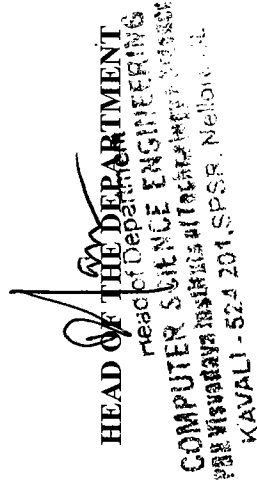 HEAD OF THE DEPARTMENT
Head of Department
COMPUTER SCIENCE ENGINEERING
PBR Visvodaya Institute of Technology & Science
KAVALI - 524 201, SPSR. Nellore